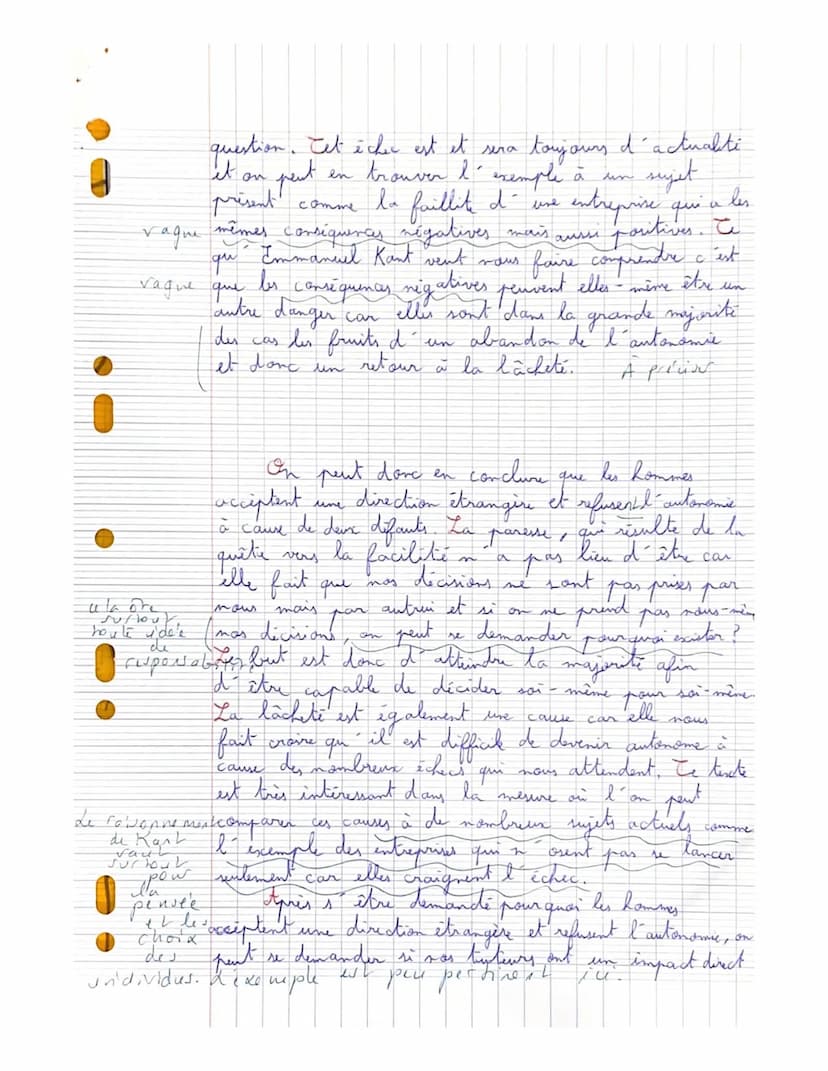 question. Cet échec est et sera toujours d'actualité
et on peut en trouver l'exemple à un sujet
présent comme la faillite d'une entreprise qui a les
vague mêmes conséquences négatives mais aussi positives. Ce
qu'Emmanuel Kant veut nous faire comprendre c'est
vague que les conséquences négatives peuvent elles-même être un
autre danger car elles sont dans la grande majorité
des cas les fruits d'un abandon de l'autonomie
et donc un retour à la lâcheté. À préciser
On peut donc en conclure que les hommes
accèptent une direction étrangère et refusent l'autonomie
à cause de deux défauts. La paresse, qui résulte de la
quête vers la facilité n'a pas lieu d'être car
elle fait que nos décisions ne sont pas prises par
nous mais par autrui et si on ne prend pas nous-même
nos décisions, on peut se demander pourquoi exister ?
cela ôte
surtout
toute idée
de
responsabilité
Le but est donc d'atteindre la majorité afin
d'être capable de décider soi-même pour soi-même.
La lâcheté est également une cause car elle nous
fait croire qu'il est difficile de devenir autonome à
cause des nombreux échecs qui nous attendent. Ce texte
est très intéressant dans la mesure où l'on peut
comparer ces causes à de nombreux sujets actuels comme
l'exemple des entreprises qui n'osent pas se lancer
seulement car elles craignent l'échec.
Après s'être demandé pourquoi les hommes
accèptent une direction étrangère et refusent l'autonomie, on
peut se demander si nos tuteurs ont un impact direct
Le raisonnement
de Kant
vaut
surtout
pour
la
pensée
et les
choix
des
individus. L'exemple est peu pertinent ici.